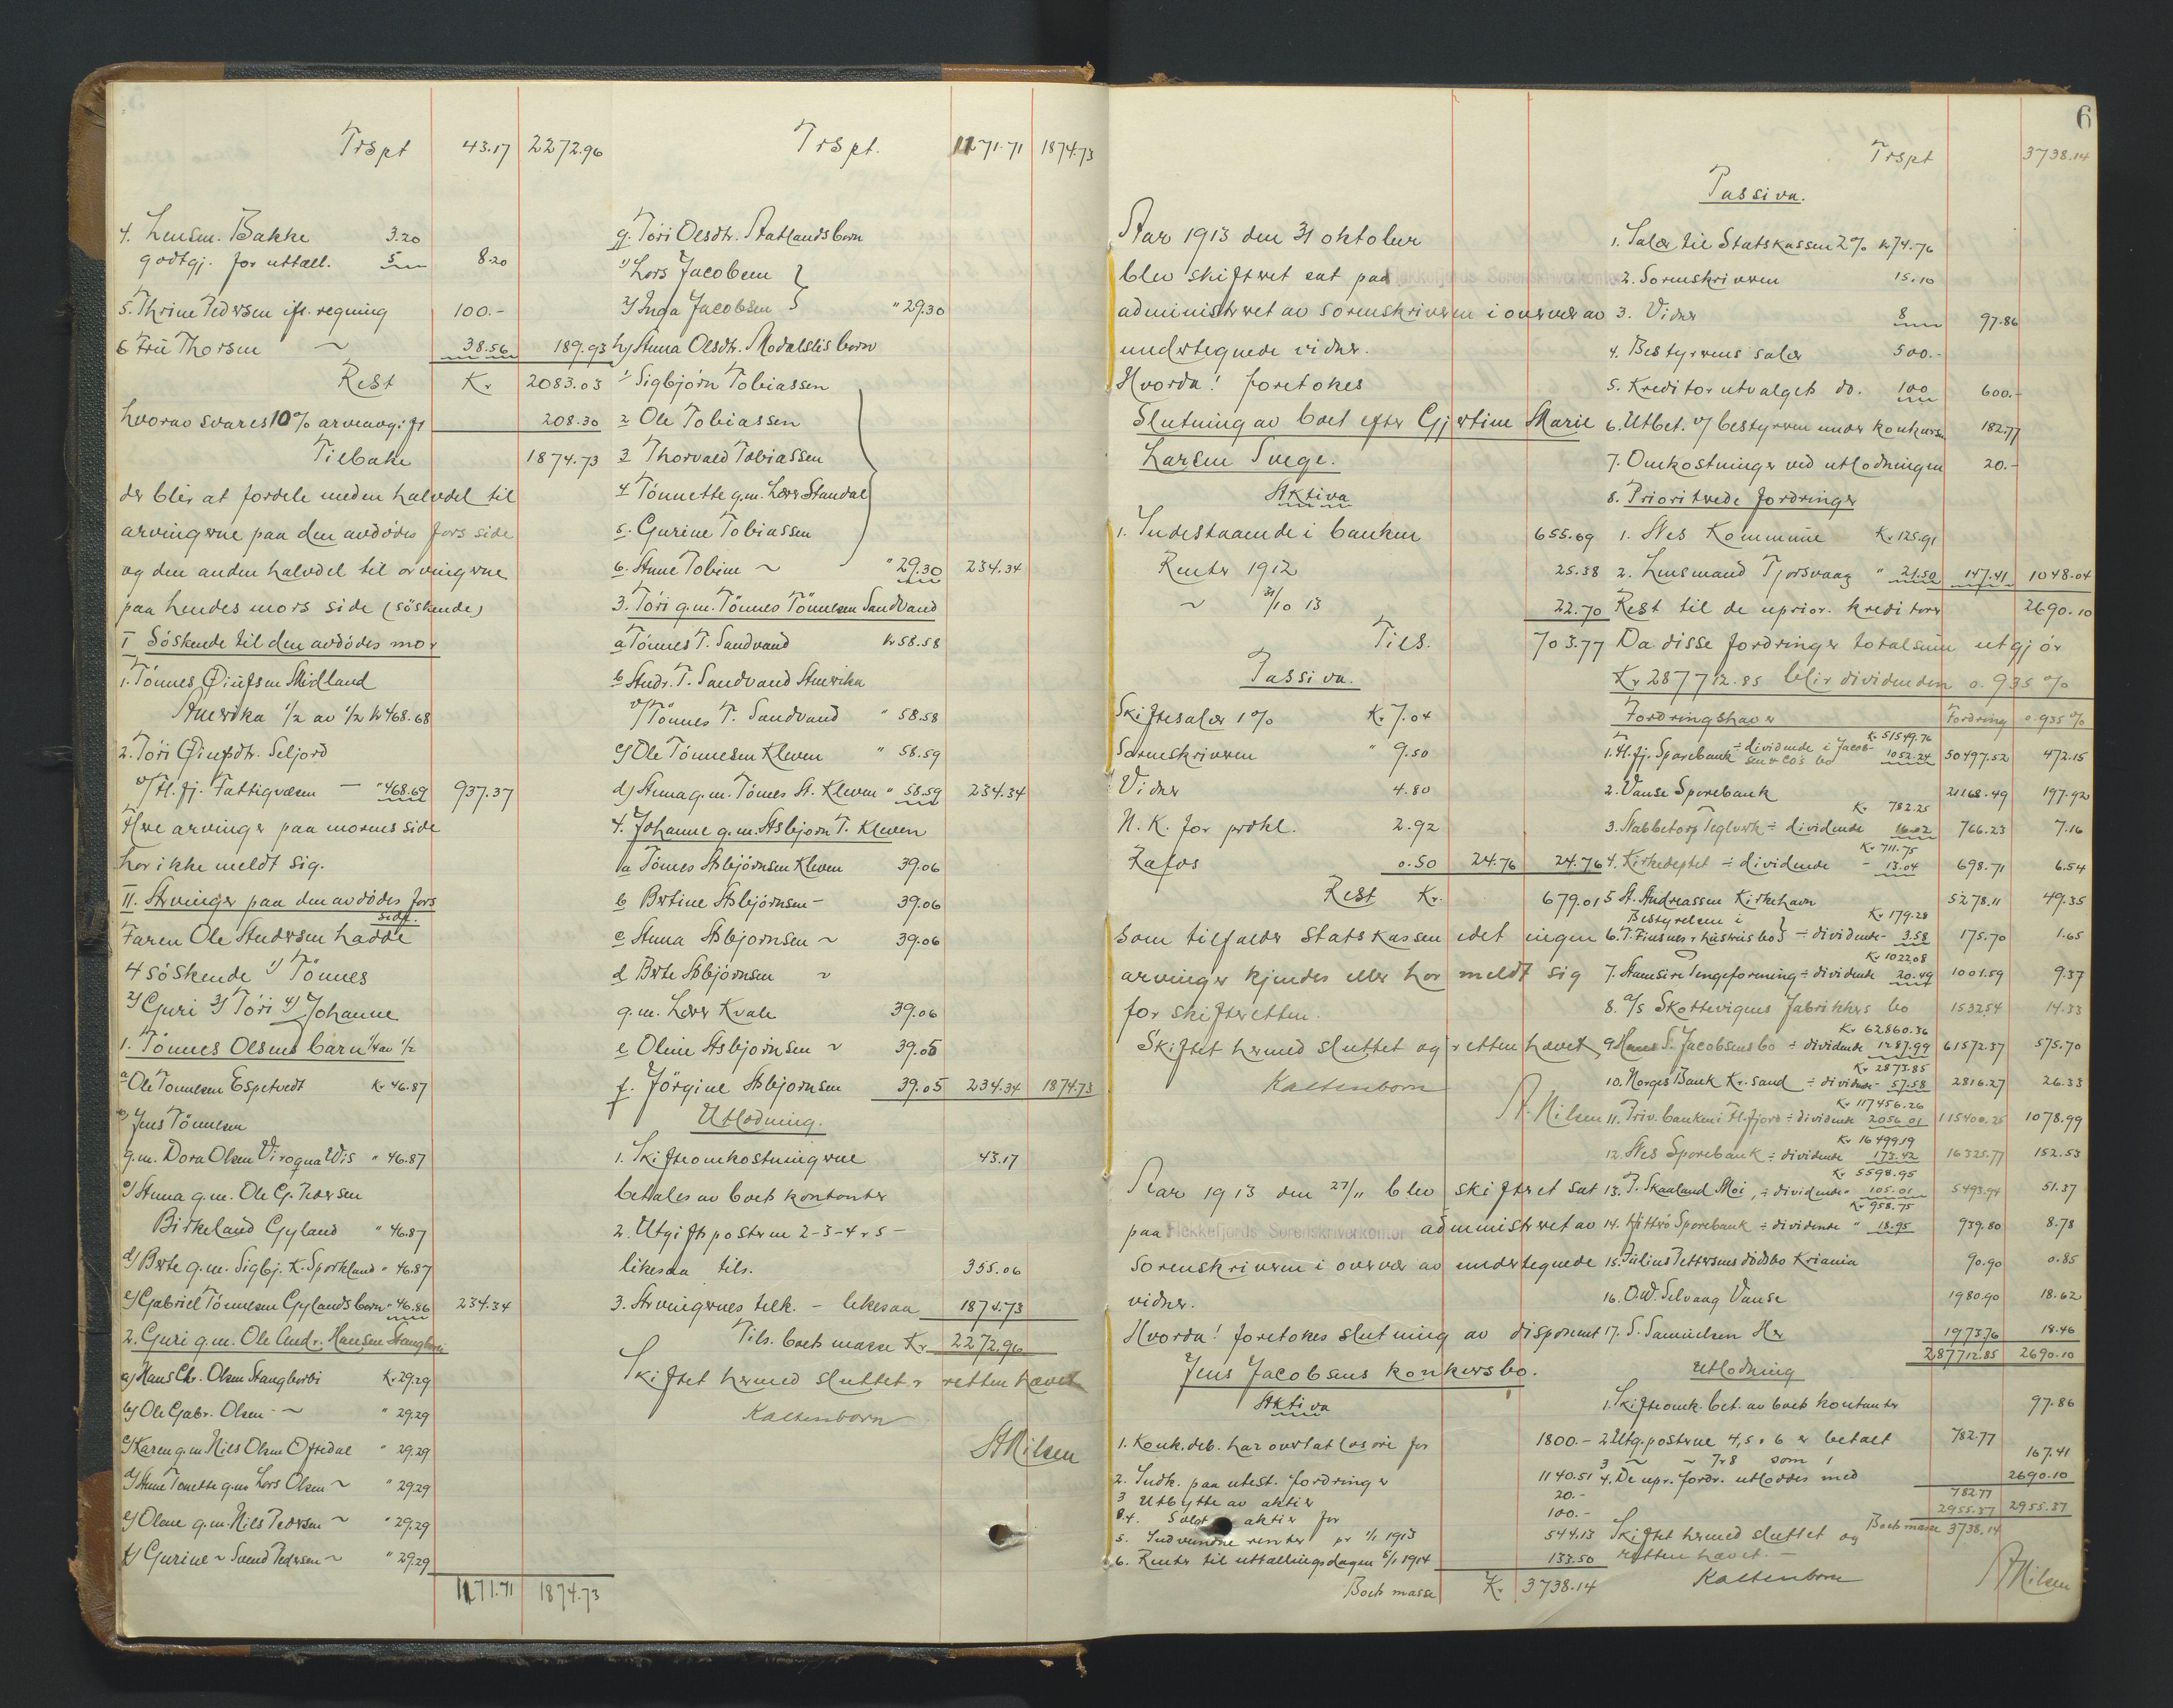 Trspt 43.17 2272.96
4. Lensm. Bakke 3.20
godtgj. for uttæll. 5 8.20
5. Thrine Pedersen ifl. regning 100.-
6 Fru Thorsen ~ 38.56 189.93
Rest Kr 2083.03
hvorav svares 10% arveavgift 208.30
Tilbake 1874.73
der blir at fordele med en halvdel til
arvingerne paa den avdödes fars side
og den anden halvdel til arvingerne
paa hendes mors side (söskende)
I Söskende til den avdödes mor
1. Tönnes Öiufsen Midland
Amerika 1/2 av 1/2 kr 468.68
2. Töri Öiufsdtr. Seljord
v/ Fl. fj. Fattigvæsen — " 468.69 937.37
Flere arvinger paa morens side
har ikke meldt sig.
II. Arvinger paa den avdödes fars
side.
Faren Ole Andersen hadde
4 söskende 1) Tönnes
2) Guri 3) Töri 4) Johanne
1. Tönnes Olsens barn 1/4 av 1/2
a Ole Tönnesen Espetvedt Kr 46.87
b) Jens Tönnesen
g.m. Dora Olsen Viroqua Wis " 46.87
c) Anna g.m. Ole G. Pedersen
Birkeland Gyland " 46.87
d) Berte g.m. Sigbj. K. Sporkland " 46.87
e) Gabriel Tönnesen Gylands barn " 46.86 234.34
2. Guri g.m. Ole Andr. Hansen Stangborli
a) Hans Chr. Olsen Stangborli Kr 29.29
b) Ole Gabr. Olsen - ~ " 29.29
c) Karen g.m. Nils Olsen Ofredal " 29.29
d) Anne Tonette g.m. Lars Olsen ~ " 29.29
e) Olene g.m. Nils Pedersen ~ " 29.29
f) Gurine ~ Svend Pedersen ~ " 29.29
1171.71 1874.73
Trspt. 1171.71 1874.73
g. Töri Olsdtr. Statlands barn
1) Lars Jacobsen
2) Inga Jacobsen " 29.30
h) Anna Olsdtr. Modalslis barn
1) Sigbjörn Tobiassen
2 Ole Tobiassen
3 Thorvald Tobiassen
4 Tönnette g.m. Lars Standal
5. Gurine Tobiassen
6. Anne Tobine ~ " 29.30 234.34
3. Töri g.m. Tönnes Tönnesen Sandvand
a Tönnes T. Sandvand kr 58.58
b Andr. T. Sandvand Amerika
v/ Tönnes T. Sandvand " 58.58
c) Ole Tönnesen Kleven " 58.59
d) Anna g.m. Tönnes A. Kleven " 58.59 234.34
4. Johanne g.m. Asbjorn T. Kleven
a Tönnes Asbjörnsen Kleven 39.06
b Bertine Asbjörnsen - 39.06
c Anna Asbjornsen ~ 39.06
d Berte Asbjörnsen ~
g.m. Lars Kvale 39.06
e Oline Asbjornsen ~ 39.05
f. Jörgine Asbjornsen 39.05 234.34 1874.73
Utlodning.
1. Skifteomkostningerne 43.17
betales av boets kontanter
2. Utgiftsposterne 2-3-4 & 5 -
likesaa tils. 355.06
3. Arvingernes tilk. - likesaa 1874.73
Tils. boets masse Kr 2272.96
Skiftet hermed sluttet & retten hævet
Kaltenborn
A Nilsen
Aar 1913 den 31 oktober
blev skifteret sat paa Flekkefjords Sorenskriverkontor
administreret av sorenskriveren i overvær av
undertegnede vidner.
Hvorda! foretokes
Slutning av boet efter Gjertine Marie
Larsen Svege.
Aktiva
1. Indestaaende i banken 655.69
Renter 1912 25.38
~ 31/10 13 22.70
Tils. 703.77
Passiva.
Skiftesalær 1% Kr. 7.04
Sorenskriveren " 9.50
Vidner 4.80
N. K. for prokl. 2.92
Rafos 0.50 24.76 24.76
Rest Kr. 679.01
som tilfalder Statskassen idet ingen
arvinger kjendes eller har meldt sig
for skifteretten.
Skiftet hermed sluttet og retten hævet
Kaltenborn
A. Nilsen
Aar 1913 den 27/11 blev skifteret sat
paa Flekkefjords Sorenskriverkontor administreret av
sorenskriveren i overvær av undertegnede
vidner.
Hvorda! foretokes slutning av disponent
Jens Jacobsens konkursbo.
Aktiva
1. Konk.deb. har overtat løsöre for 1800.-
2. Indk. paa utest. fordringer 1140.51
3 Utbytte av aktier 20.-
4. Solgt aktier for 100.-
5. Indvundne renter pr 1/1 1913 544.13
6. Renter til uttællingsdagen 5/1 1914 133.50
Boets masse Kr 3738.14
6
Trspt 3738.14
Passiva.
1. Salær til Statskassen 2% kr 74.76
2. Sorenskriveren 15.10
3. Vidner 8 97.86
4. Bestyrerens salær 500.-
5. Kreditorutvalgets do. 100 600.-
6. Utbet. v/ bestyreren under konkursen 182.77
7. Omkostninger ved utlodningen 20.-
8. Prioriterede fordringer
1. Nes Kommune Kr 125.91
2. Lensmand Tjorsvaag " 21.50 147.41 1048.04
Rest til de uprior. kreditorer 2690.10
Da disse fordringer totalsum utgjör
Kr 287712.85 blir dividenden 0.935 %
Fordringshaver Fordring 0.935 %
Kr 51549.76
1. Fl. fj. Sparebank ÷ dividende i Jacobsen & Co's bo 1052.24 50497.52 472.15
2. Vanse Sparebank 21168.49 197.92
Kr 782.25
3. Stabbetorp Teglverk ÷ dividende 16.02 766.23 7.16
Kr 711.75
4. Kirkedeptet ÷ dividende - 13.04 698.71 6.54
5 A. Andreassen Kirkehavn 5278.11 49.35
Bestyrelsen i Kr 179.28
6. T. Finsnes & hustrus bo ÷ dividende - 3.58 175.70 1.65
Kr 1022.08
7. Stamsire Tengeforening ÷ dividende 20.49 1001.59 9.37
8. A/S Skottevigens Fabrikkers bo 1532.54 14.33
Kr 62860.36
9 Hans S. Jacobsens bo ÷ dividende 1287.99 61572.37 575.70
Kr 2873.85
10. Norges Bank Kr.sand ÷ dividende - 57.58 2816.27 26.33
Kr 117456.26
11. Priv.banken i Fl.fjord ÷ dividende 2056.01 115400.25 1078.99
Kr 16499.19
12. Nes Sparebank ÷ dividende 173.42 16325.77 152.53
Kr 5598.95
13. T. Skaaland Moi, ÷ dividende " 105.01 5493.94 51.37
Kr 958.75
14. Hitterö Sparebank ÷ dividende " 18.95 939.80 8.78
15. Julius Pettersens dödsbo Kriania 90.90 0.85
16. O.W. Selvaag Vanse 1980.90 18.62
17. S. Samuelsen Her 1973.76 18.46
287712.85 2690.10
Utlodning
1. Skifteomk. bet. av boets kontanter 97.86
2 Utg.posterne 4, 5 & 6 er betalt 782.77
3 ~ ~ 7 & 8 som 1 167.41
4. De upr. fordr. utloddes med 2690.10
782.77
2955.37 2955.37
Boets masse 3738.14
Skiftet hermed sluttet og
retten hævet. -
Kaltenborn
A Nilsen